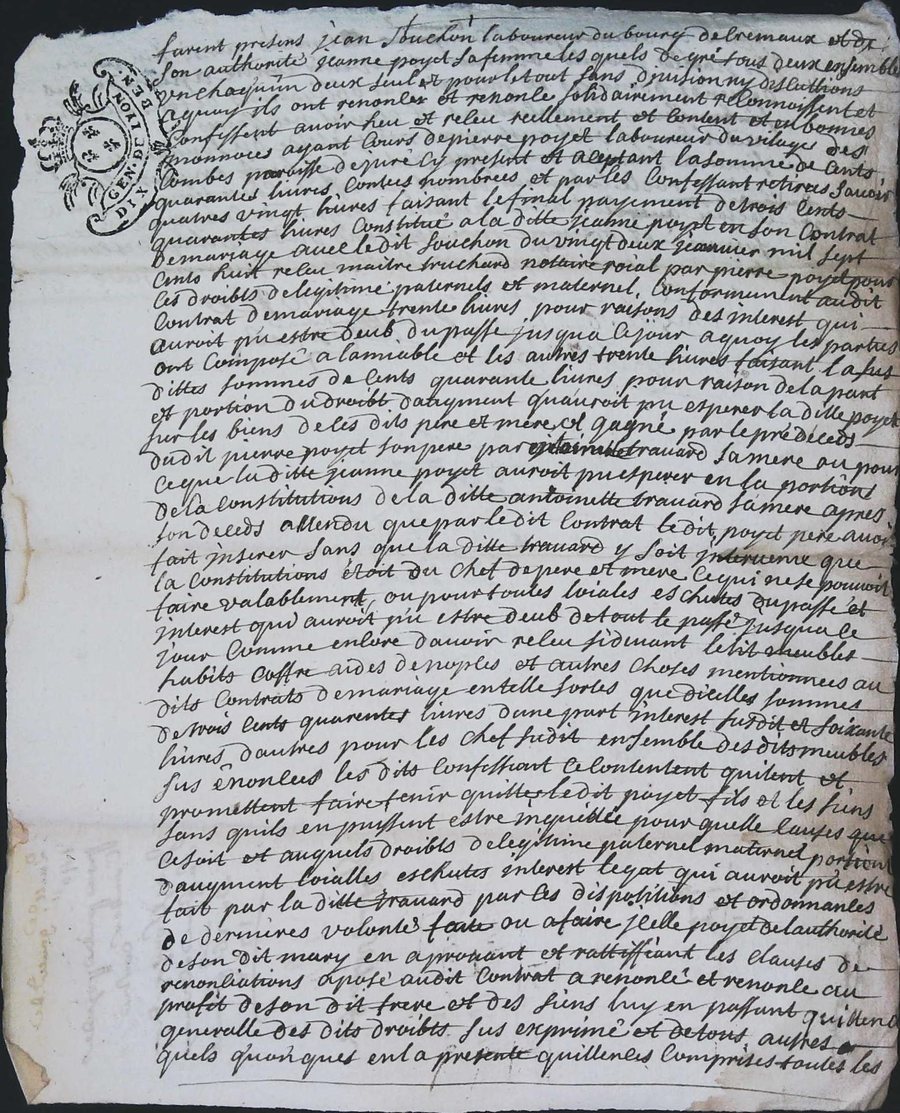 GEN. DE LYON BEN
DIX
furent presens jean Souchon laboureur du bourg de Cremaux et de
son authorité jeanne poyet sa femme les quels de gré tous deux ensemble
un chacquun deux seul et pour le tout sans division ny discutions
a quoy ils ont renoncé et renonce solidairement reconnoissent et
Confessent avoir heu et receu reellement et content et en bonnes
monnoies ayant Cours de pierre poyet laboureur du village des
Combes paroisse de juré Cy present et aceptant la somme de Cents
quarantes livres, Contées nombrées et par les Confessant retirés Savoir
quatres vingt livres faisant le final payement de trois Cents
quarantes livres Constitué a la ditte jeanne poyet en son Contrat
de mariage avec le dit Souchon du vingt deux jeanvier mil sept
Cents huit receu maitre truchard notaire roial par pierre poyet pour
Ces droibts de legitime paternels et maternel, Conformement au dit
Contrat de mariage trente livres pour raisons des interest qui
auroit pu estre deub du passé jusqua ce jour a quoy les parties
ont Composé a lamiable et les autres trente livres faisant la sus
dittes sommes de Cents quarante livres, pour raison de la part
et portion du droibt daugment quauroit pu esperer la ditte poyet
sur les biens de ces dits pere et mere et gagné par le prédeceds
du dit pierre poyet son pere par antoinette travard sa mere ou pour
Ce que la ditte jeanne poyet auroit pu esperer en la portion
de la Constitutions de la ditte antoinette travard sa mere apres
son deceds attendu que par le dit Contrat le dit poyet pere avoit
fait inserer sans que la ditte travard y soit intervenue que
la Constitutions étoit du Chef de pere et mere Ce qui ne se pouvoit
faire valablement, ou pour toutes loiales eschutes du passé et
interest qui auroit pu estre deub de tout le passé jusqua ce
jour Comme encore davoir receu si devant le lit meubles
habits Coffre aides de noples et autres choses mentionnees au
dits Contrats de mariage en telle sortes que dicelles sommes
de trois Cents quarentes livres dune part interest susdit et soixante
livres dautres pour les chef susdit ensemble des dits meubles
sus énoncees les dits Confessant ce Contentent quitent et
promettent faire tenir quittes le dit poyet fils et les siens
sans quils en puissent estre inquiétée pour quelle Causes que
Ce soit et auquels droibts de legitime paternel maternel portion
daugment loialles eschutes interest legat qui auroit pu estre
fait par la ditte travard par Ces dispotitions et ordonnances
de dernieres volonté faite ou a faire jcelle poyet de lauthorité
de son dit mary en aprouvant et rattiffiéant les clauses de
renonciations aposé audit Contrat a renoncé et renonce au
profit de son dit frere et des siens luy en passant quittence
generalle des dits droibts sus exprimé et de tous autres
quels quonques en la presente quittences Comprises toutes les